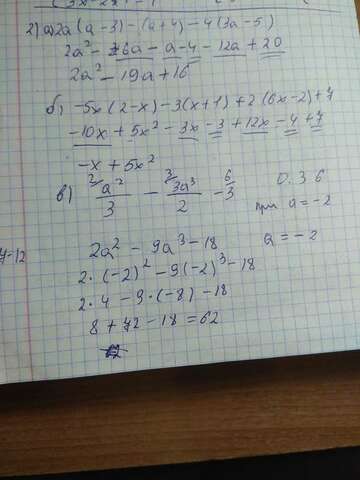 2) а) 2a(a-3)-(a+4)-4(3a-5)
2a² - 6a - a - 4 - 12a + 20
2a² - 19a + 16
б) -5x(2-x)-3(x+1)+2(6x-2)+7
-10x + 5x² - 3x - 3 + 12x - 4 + 7
-x + 5x²
в) ²⁄ a²/3 - ³⁄ 3a³/2 - ⁶3 О.З 6
при a = -2
2a² - 9a³ - 18 a = -2
2·(-2)² - 9(-2)³ - 18
2·4 - 9·(-8) - 18
8 + 72 - 18 = 62